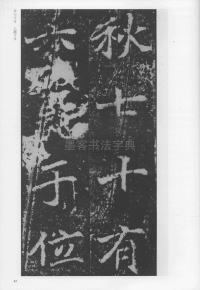 秋七十有
六薨于位
墨客书法字典